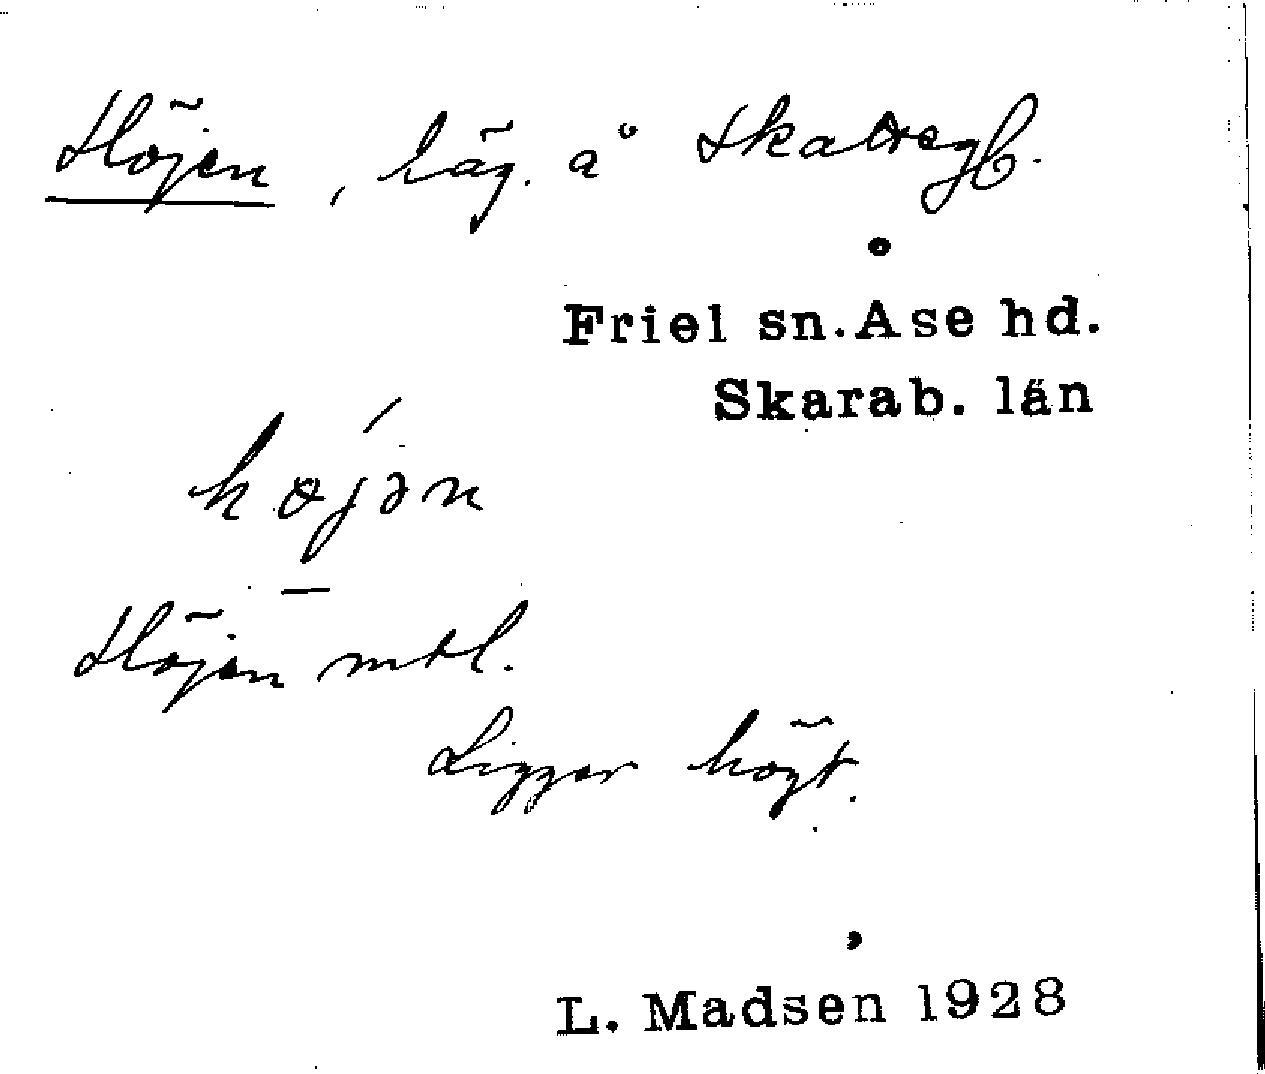 Höjen, häg. å Skattegb.
Friel sn. Åse hd.
Skarab. län
højən
Höjen mtl.
Ligger högt.
L. Madsen 1928